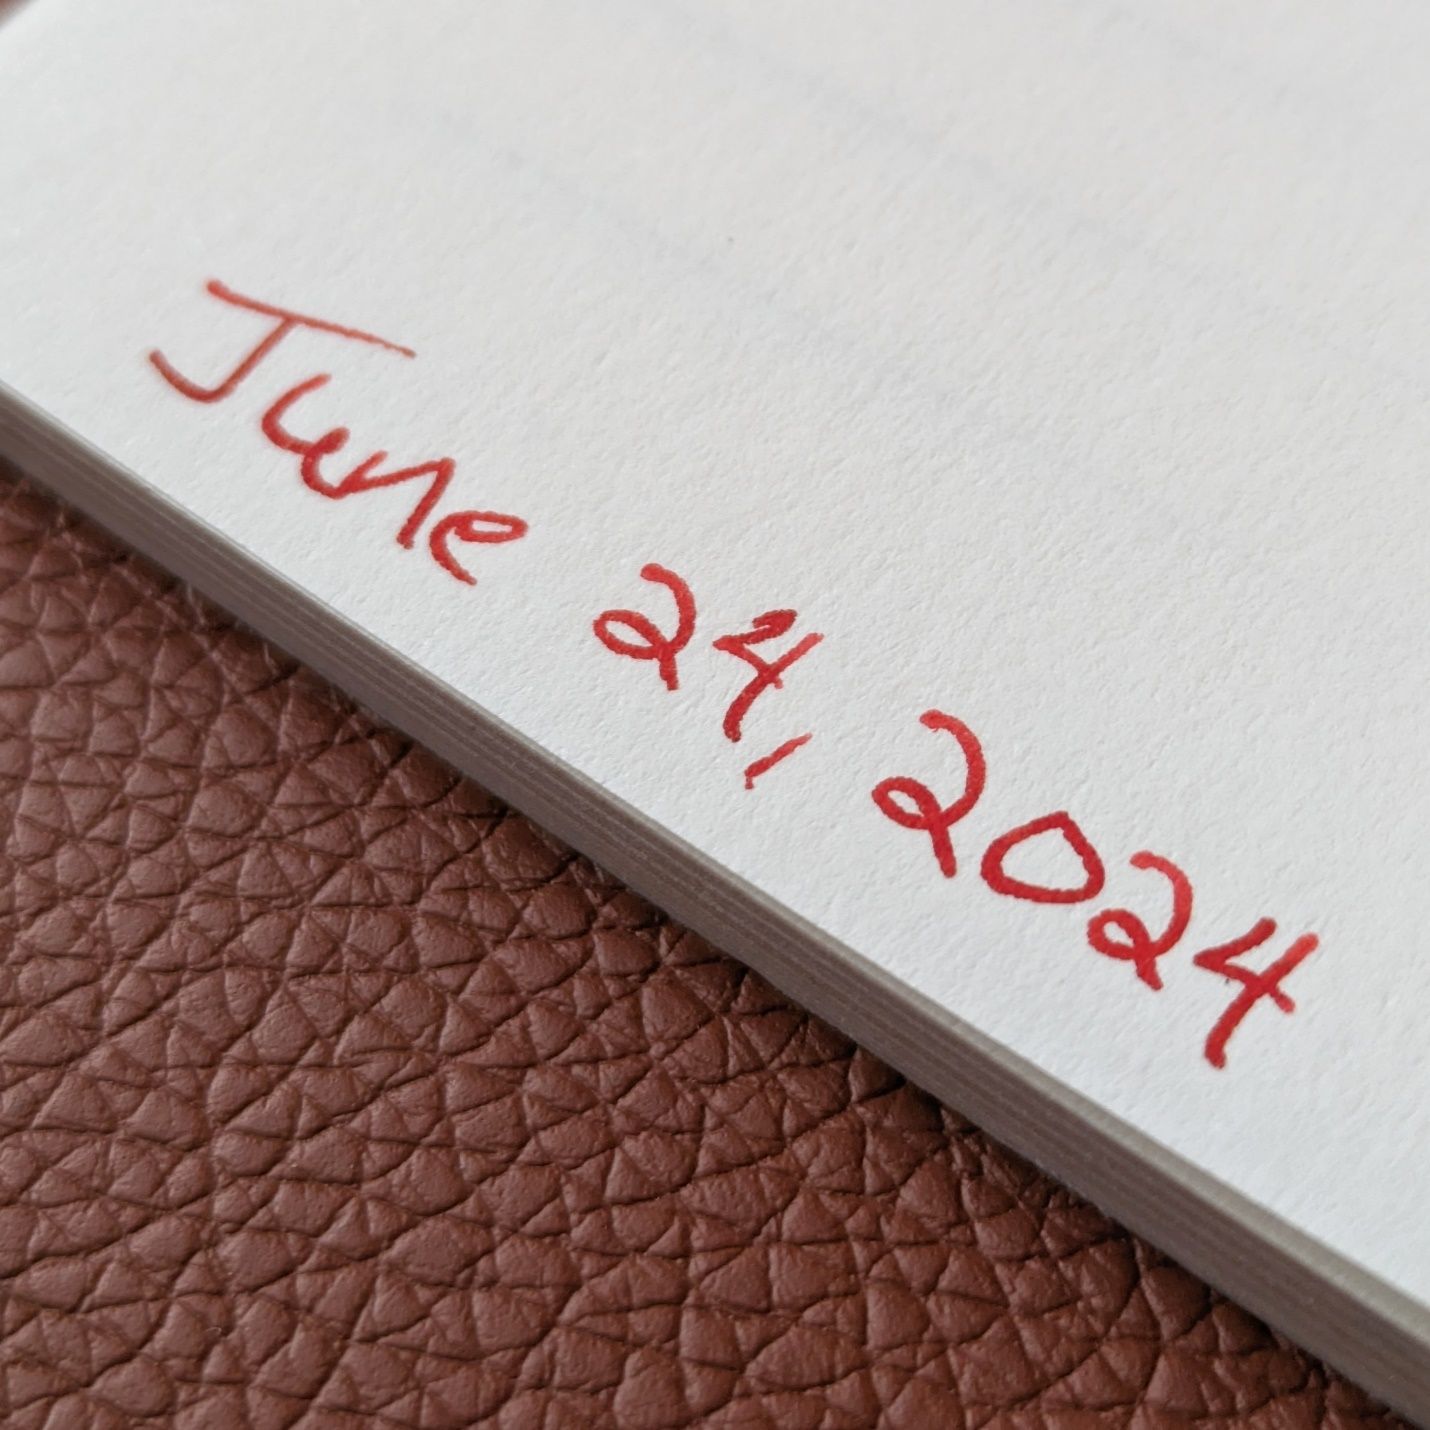 June 24, 2024